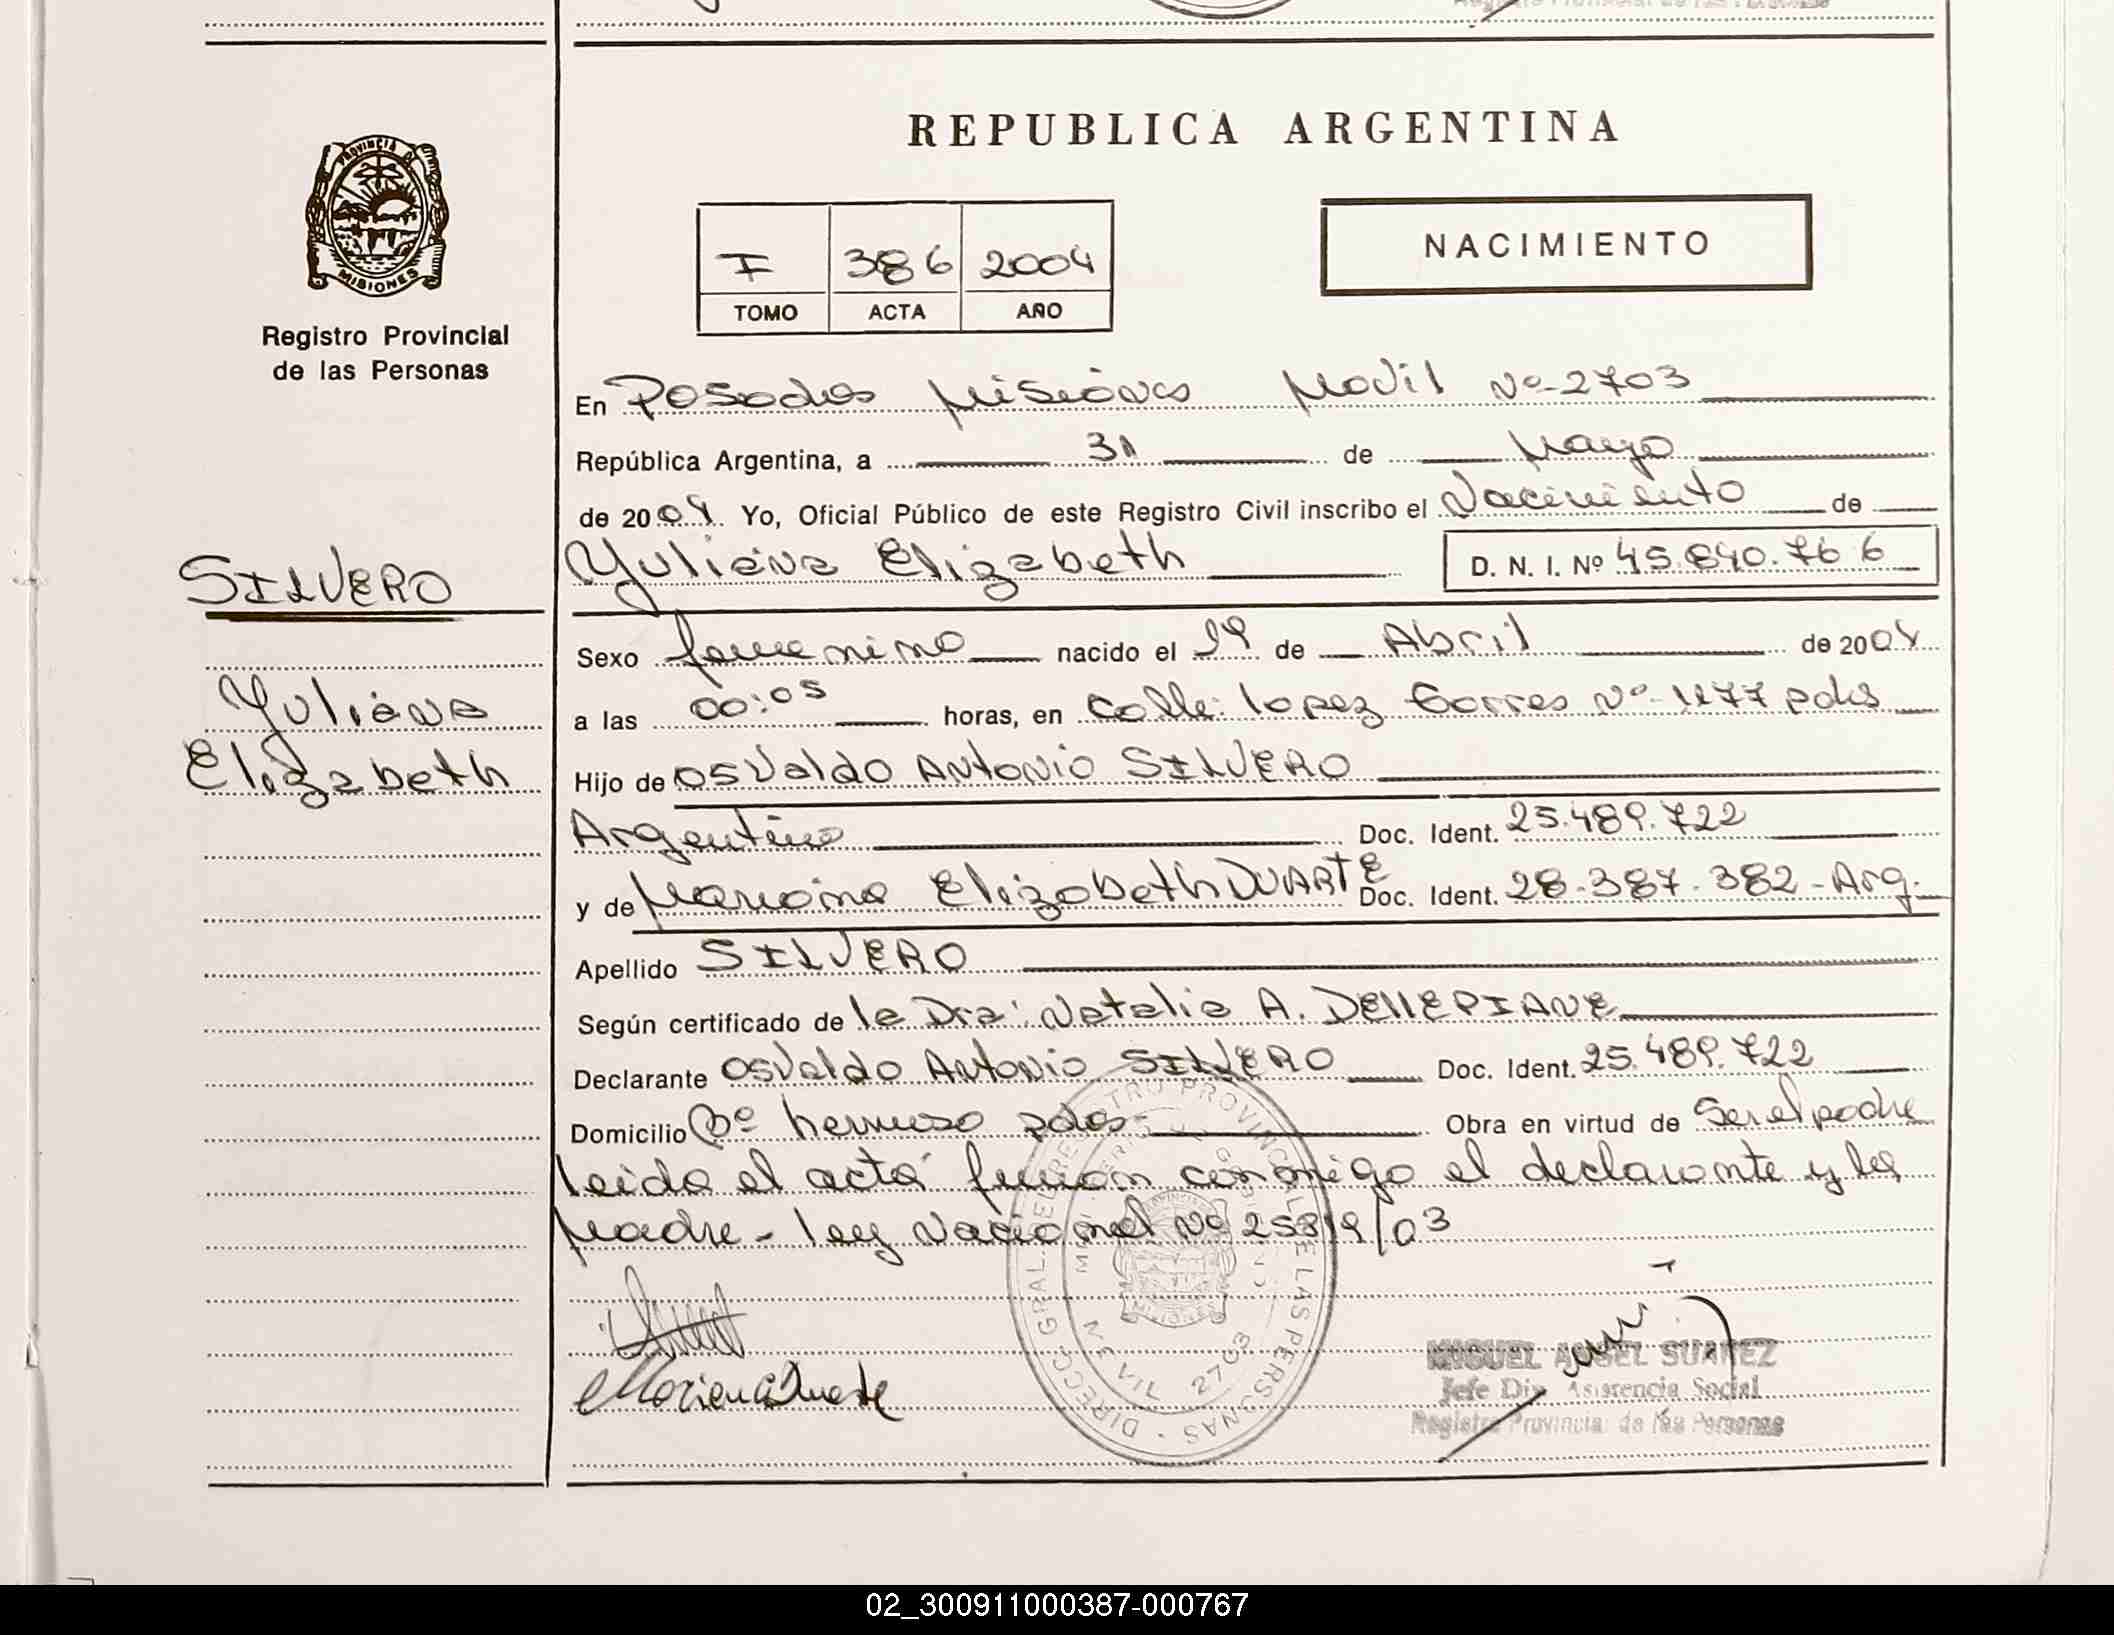 REPUBLICA ARGENTINA
PROVINCIA DE
MISIONES
Registro Provincial
de las Personas
I 386 2004
TOMO ACTA AÑO
NACIMIENTO
En Posadas Misiones Movil Nº 2703
República Argentina, a 31 de Mayo
de 2004 Yo, Oficial Público de este Registro Civil inscribo el Nacimiento de
Yuliana Elizabeth D. N. I. Nº 45.840.766
SILVERO
Yuliana
Elizabeth
Sexo femenino nacido el 29 de Abril de 2004
a las 00:05 horas, en Calle: Lopez torres Nº 1177 pdas
Hijo de Osvaldo Antonio SILVERO
Argentino Doc. Ident. 25.489.722
y de Mariana Elizabeth DUARTE Doc. Ident. 28.387.382 - Arg.
Apellido SILVERO
Según certificado de la Dra: Natalia A. DELLEPIANE
Declarante Osvaldo Antonio SILVERO Doc. Ident. 25.489.722
Domicilio Bº hermoso pdas Obra en virtud de Ser el padre
Leida el acta firman conmigo el declarante y la
Madre - Ley Nacional Nº 25819/03
Mariana Duarte
DIRECC. GRAL. DEL REGISTRO PROVINCIAL DE LAS PERSONAS
MOVIL Nº 2703
MISIONES
MIGUEL ANGEL SUAREZ
Jefe Div. Asistencia Social
Registro Provincial de las Personas
02_300911000387-000767